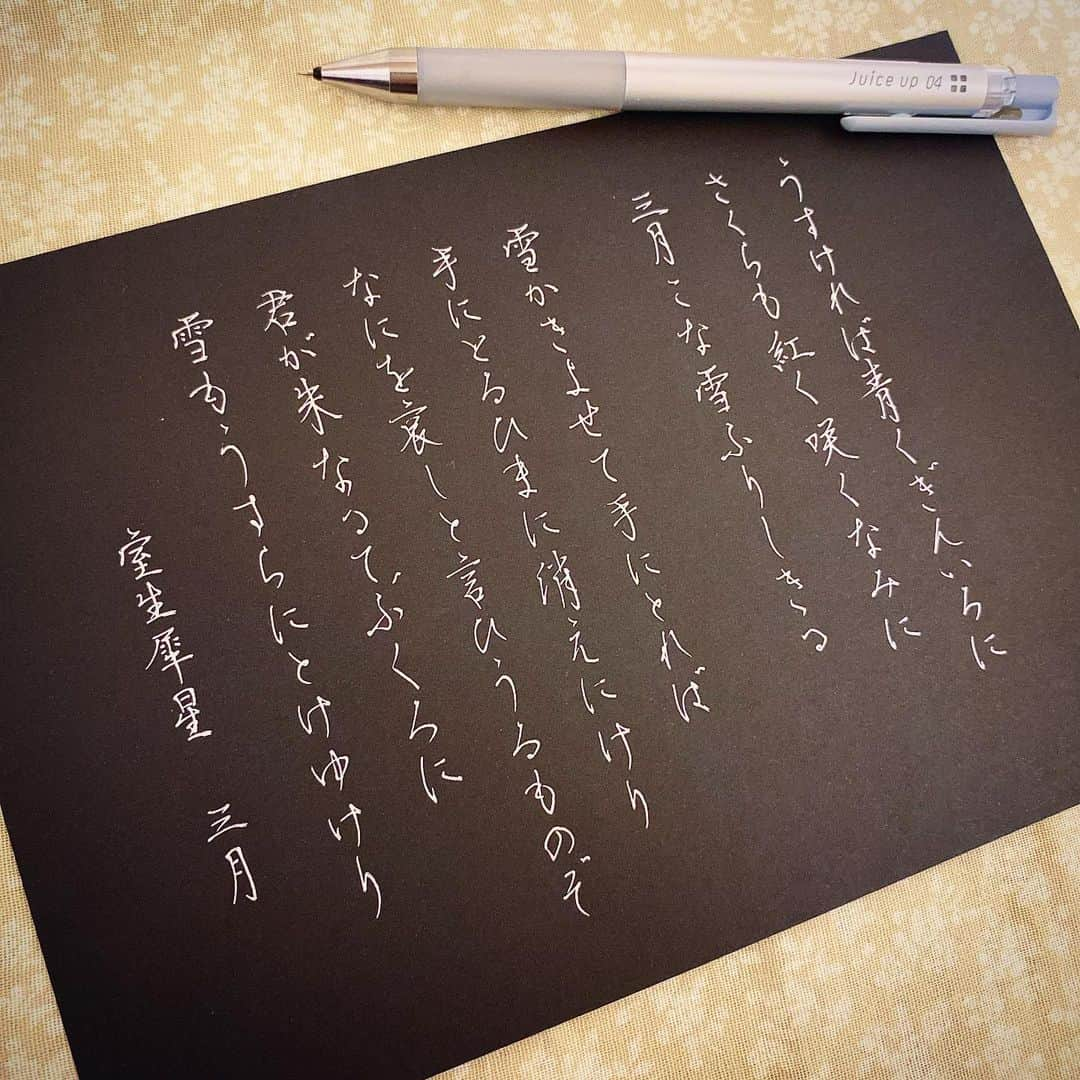 Juice up 04
うすければ青くぎんいろに
さくらも紅く咲くなみに
三月こな雪ふりしきる
雪かきよせて手にとれば
手にとるひまに消えにけり
なにを哀しと言ひうるものぞ
君が朱なるてぶくろに
雪もうすらにとけゆけり
室生犀星 三月